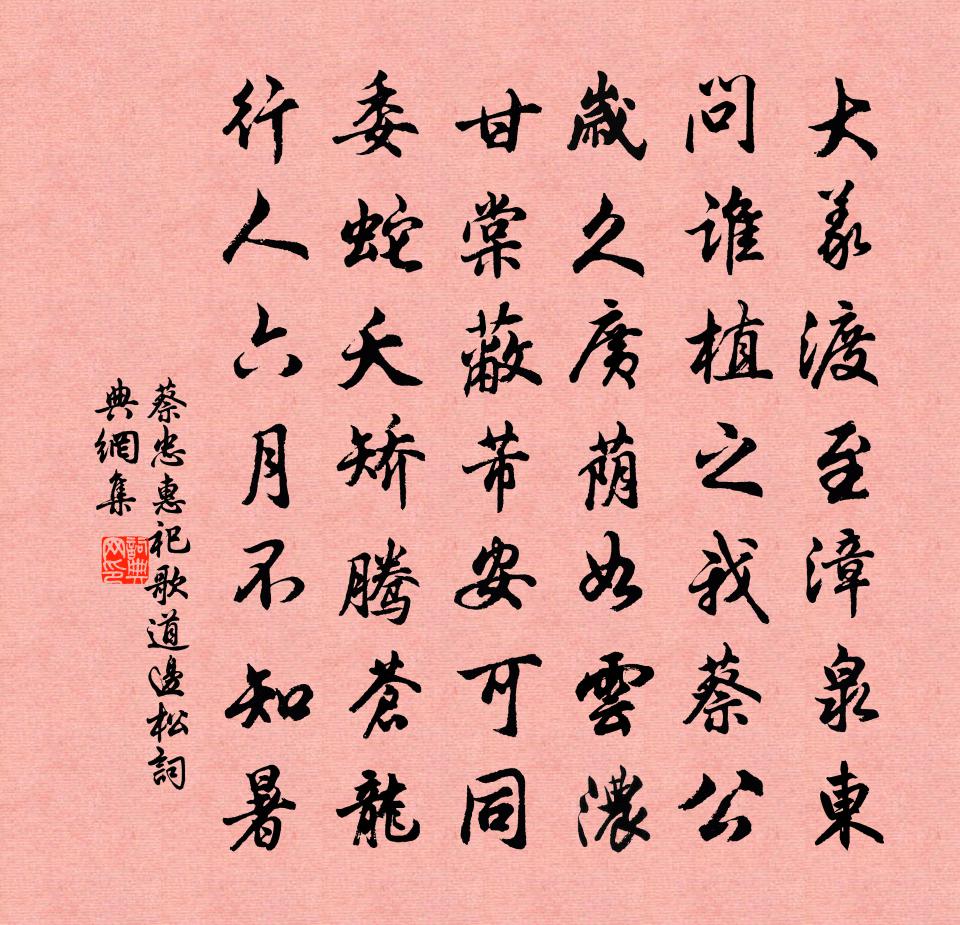 大義渡至漳泉東
問誰植之我蔡公
歲久廣蔭如雲濃
甘棠蔽芾安可同
委蛇夭矯騰蒼龍
行人六月不知暑
蔡忠惠祀歌道邊松詞
典網集
詞典網印